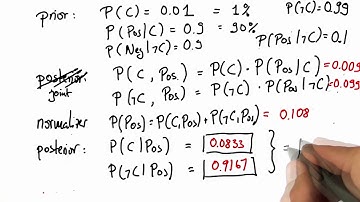 prior: P(C) = 0.01 = 1% P(¬C) = 0.99
P(Pos|C) = 0.9 = 90%
P(Neg|¬C) = 0.9 P(Pos|¬C) = 0.1
posterior: P(C, Pos.) = P(C) · P(Pos|C) = 0.009
joint P(¬C, Pos.) = P(¬C) · P(Pos|¬C) = 0.099
normalizer P(Pos) = P(C, Pos) + P(¬C, Pos) = 0.108
posterior: P(C|Pos) = 0.0833
P(¬C|Pos) = 0.9167 } =